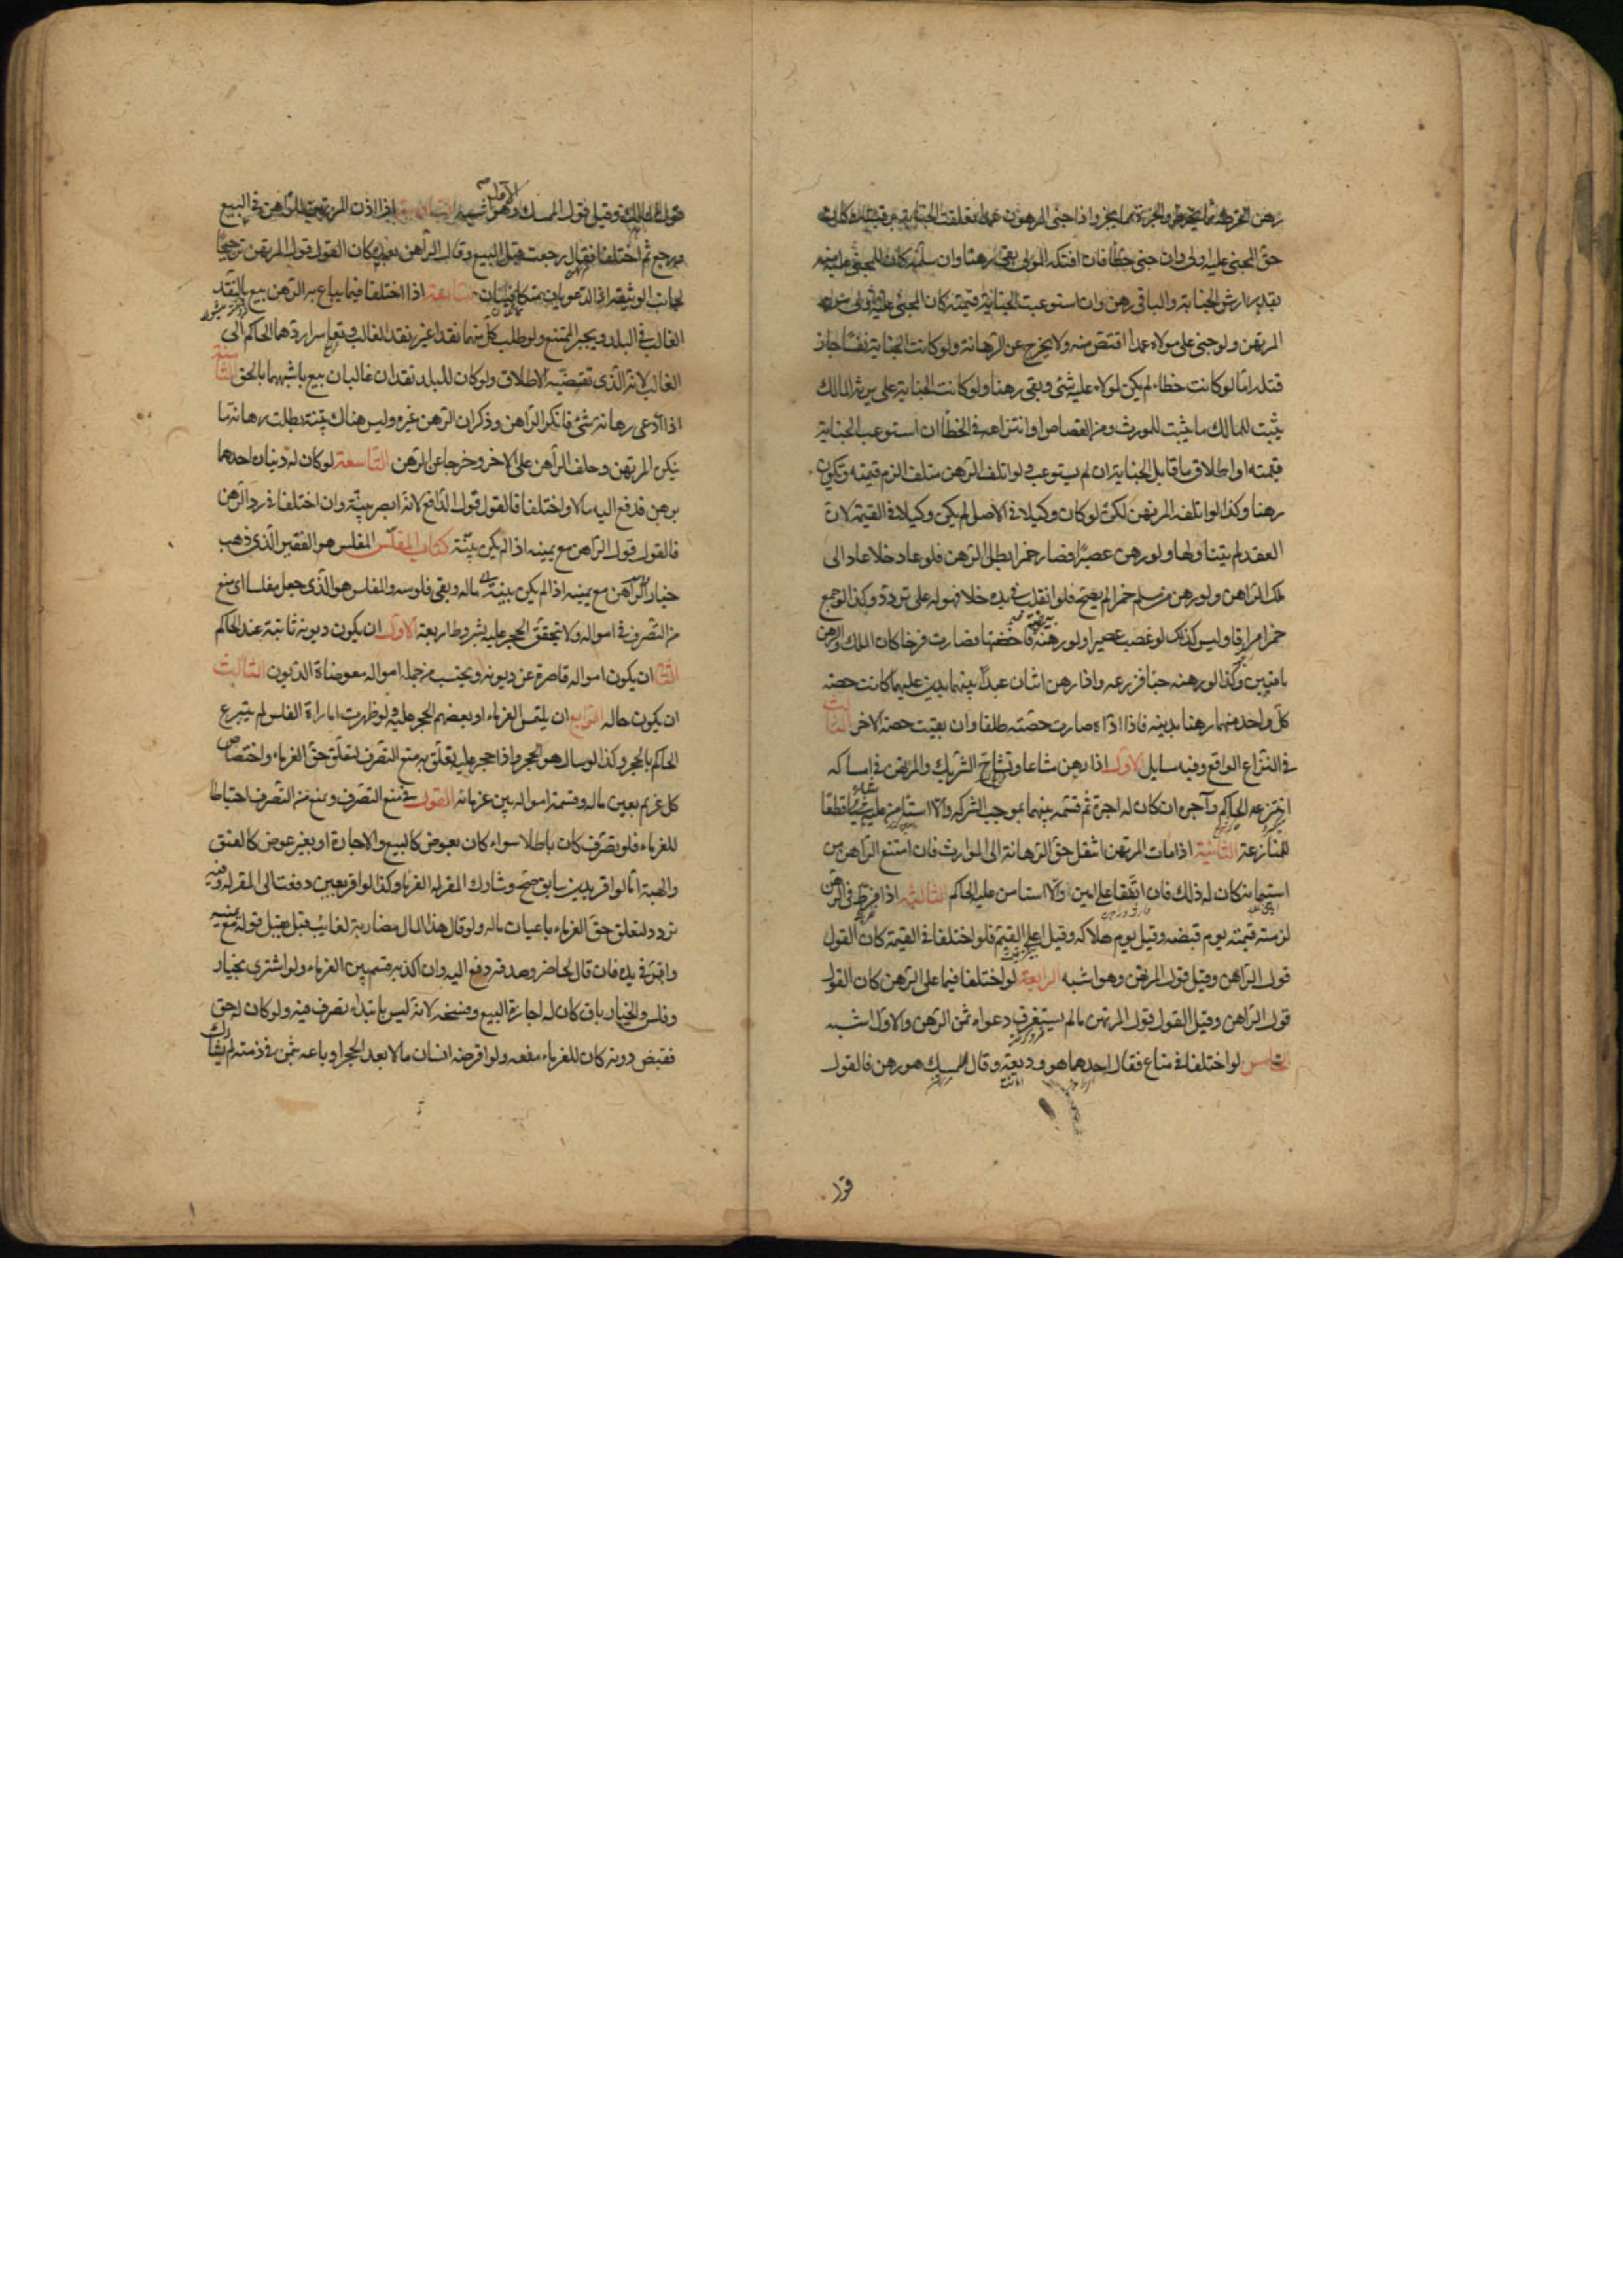 حق المجنى عليه اولى وان جنى خطأ فان افتكه المولى بقى رهنا وان سلمه كان للمجنى عليه منه
بقدر ارش الجناية والباقى رهن وان استوعبت الجناية قيمته كان المجنى عليه اولى به من
المرتهن ولو جنى على مولاه عمدا اقتص منه ولا يخرج عن الرهانة ولو كانت الجناية نفسا جاز
قتله اما لو كانت خطاء لم يكن لمولاه عليه شئ وبقى رهنا ولو كانت الجناية على من يرثه المالك
يثبت للمالك ما يثبت للمورث من القصاص او انتزاعه فى الخطأ ان استوعب الجناية
قيمته او اطلاق ما قابل الجناية ان لم يستوعب ولو اتلف الرهن متلف الزم قيمته وتكون
رهنا وكذا لو اتلفه المرتهن لكن لو كان وكيلا فى الاصل لم يكن وكيلا فى القيمة لان
العقد لم يتناولها ولو رهن عصيرا فصار خمرا بطل الرهن فلو عاد خلا عاد الى
ملك الراهن ولو رهن من مسلم خمرا لم يصح فلو انقلب فى يده خلا فهو له على تردد وكذا لو جمع
خمرا مراقا وليس كذلك لو غصب عصيرا ولو رهنه بيضة فاحضنها فصارت فرخا كان الملك والرهن
باقيين وكذا لو رهنه حبا فزرعه واذا رهن اثنان عبدا بينهما بدين عليهما كانت حصة
كل واحد منهما رهنا بدينه فاذا اداه صارت حصته طلقا وان بقيت حصة الاخر
فى النزاع الواقع وفيه مسايل الاول اذا رهن مشاعا وتشاح الشريك والمرتهن فى امساكه
انتزعه الحاكم وآجره ان كان له اجرة ثم قسمه بينهما بموجب الشركة والا استأمن عليه من شاء قطعا
للمنازعة الثانية اذا مات المرتهن انتقل حق الرهانة الى الوارث فان امتنع الراهن من
استيمانه كان له ذلك فان اتفقا على امين والا استامن عليه الحاكم الثالثة اذا فرط فى الرهن
لزمته قيمته يوم قبضه وقيل يوم هلاكه وقيل اعلى القيم فلو اختلفا فى القيمة كان القول
قول الراهن وقيل قول المرتهن وهو اشبه الرابعة لو اختلفا فيما على الرهن كان القول
قول الراهن وقيل القول قول المرتهن ما لم يستغرق دعواه ثمن الرهن والاول اشبه
الخامس لو اختلفا فى متاع فقال احدهما هو وديعة وقال الممسك هو رهن فالقول
قول المالك وقيل قول الممسك والاول اشبه اذا اذن المرتهن للراهن فى البيع
ورجع ثم اختلفا فقال رجعت قبل البيع وقال الراهن بعده كان القول قول المرتهن ترجيحا
لجانب الوثيقة اذ الدعويان متكافئتان السابعة اذا اختلفا فيما يباع به الرهن بيع بالنقد
الغالب فى البلد ويجبر الممتنع ولو طلب كل منهما نقدا غير نقد الغالب وتعاسرا ردهما الحاكم الى
الغالب لانه الذى تقتضيه الاطلاق ولو كان للبلد نقدان غالبان بيع باشبههما بالحق الثامنة
اذا ادعى رهانة شئ فانكر الراهن وذكر ان الرهن غيره وليس هناك بينة بطلت رهانة ما
ينكره المرتهن وحلف الراهن على الاخر وخرجا عن الرهن التاسعة لو كان له دينان احدهما
برهن فدفع اليه مالا واختلفا فالقول قول الدافع لانه ابصر بنيته وان اختلفا فى رد الرهن
فالقول قول الراهن مع يمينه اذا لم يكن بينة كتاب المفلس المفلس هو الفقير الذى ذهب
خيار الراهن مع يمينه اذا لم يكن بينة ماله وبقى فلوسه والمفلس هو الذى جعل مفلسا اى منع
من التصرف فى امواله ولا يتحقق الحجر عليه بشروط اربعة الاول ان يكون ديونه ثابتة عند الحاكم
الثانى ان يكون امواله قاصرة عن ديونه ويحتسب من جملة امواله معوضات الديون الثالث
ان يكون حاله الرابع ان يلتمس الغرماء او بعضهم الحجر عليه ولو ظهرت امارات الفلس لم يتبرع
الحاكم بالحجر وكذا لو سال هو الحجر واذا حجر عليه تعلق به منع التصرف لتعلق حق الغرماء واختصاص
كل غريم بعين ماله وقسمة امواله بين غرمائه القول فى منع التصرف ويمنع من التصرف احتياطا
للغرماء فلو تصرف كان باطلا سواء كان بعوض كالبيع والاجارة او بغير عوض كالعتق
والهبة اما لو اقر بدين سابق صح وشارك المقر له الغرماء وكذا لو اقر بعين دفعت الى المقر له وفيه
تردد لتعلق حق الغرماء باعيان ماله ولو قال هذا المال مضاربة لغايب قيل يقبل قوله مع يمينه
واقر فى يده فان قال لحاضر وصدقه دفع اليه وان اكذبه قسم بين الغرماء ولو اشترى بخيار
وفلس والخيار باق كان له اجازة البيع وفسخه لانه ليس بابتداء تصرف فيه ولو كان له حق
فقبض دونه كان للغرماء منعه ولو اقرضه انسان مالا بعد الحجر او باعه بثمن فى ذمته لم يشارك